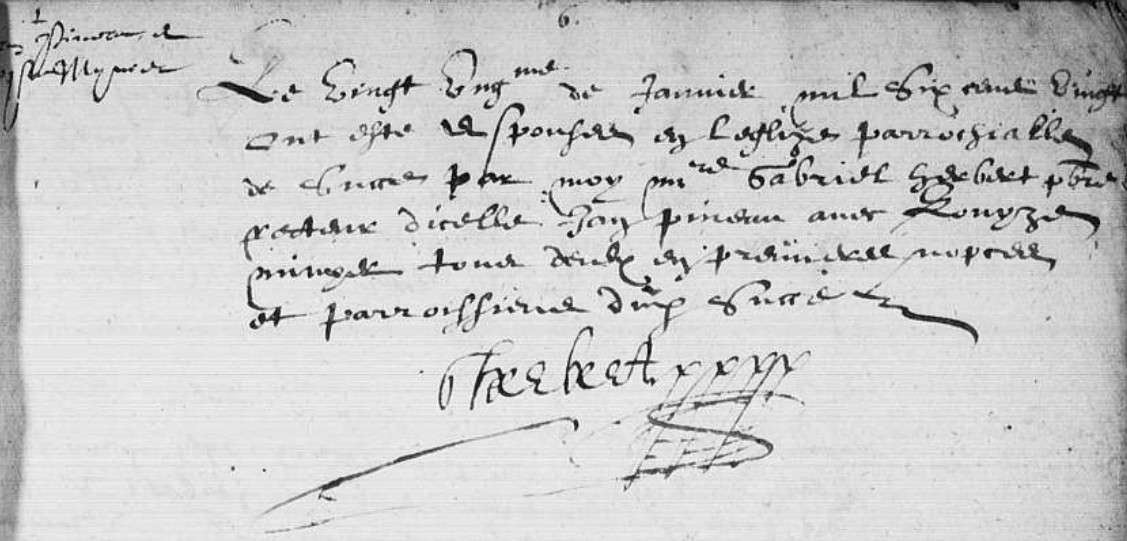 6.
Pineau et
Mynier
Le vingt ungme de Janvier mil six cens vingt
ont esté espousés en leglize parrochialle
de Succé par moy mre Gabriel Herbert pbre
recteur dicelle Jan Pineau avec Louyze
minger tous deux en premieres nopces
et parroissiens dud Succé
Herbert